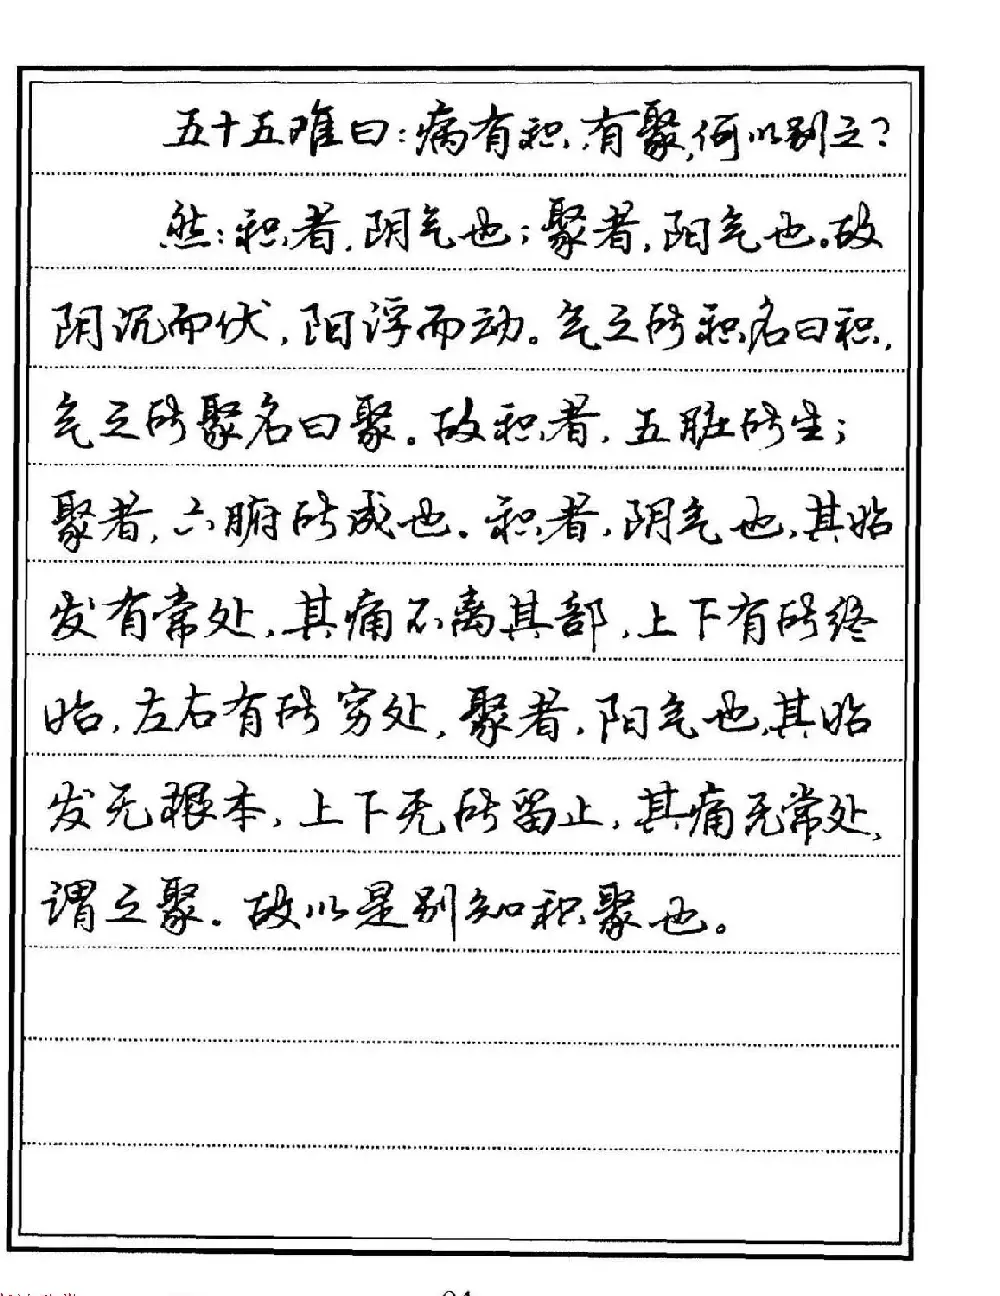 五十五难曰：病有积，有聚，何以别之？
然：积者，阴气也；聚者，阳气也。故
阴沉而伏，阳浮而动。气之所积名曰积，
气之所聚名曰聚。故积者，五脏所生；
聚者，六腑所成也。积者，阴气也，其始
发有常处，其痛不离其部，上下有所终
始，左右有所穷处，聚者，阳气也，其始
发无根本，上下无所留止，其痛无常处，
谓之聚。故以是别知积聚也。